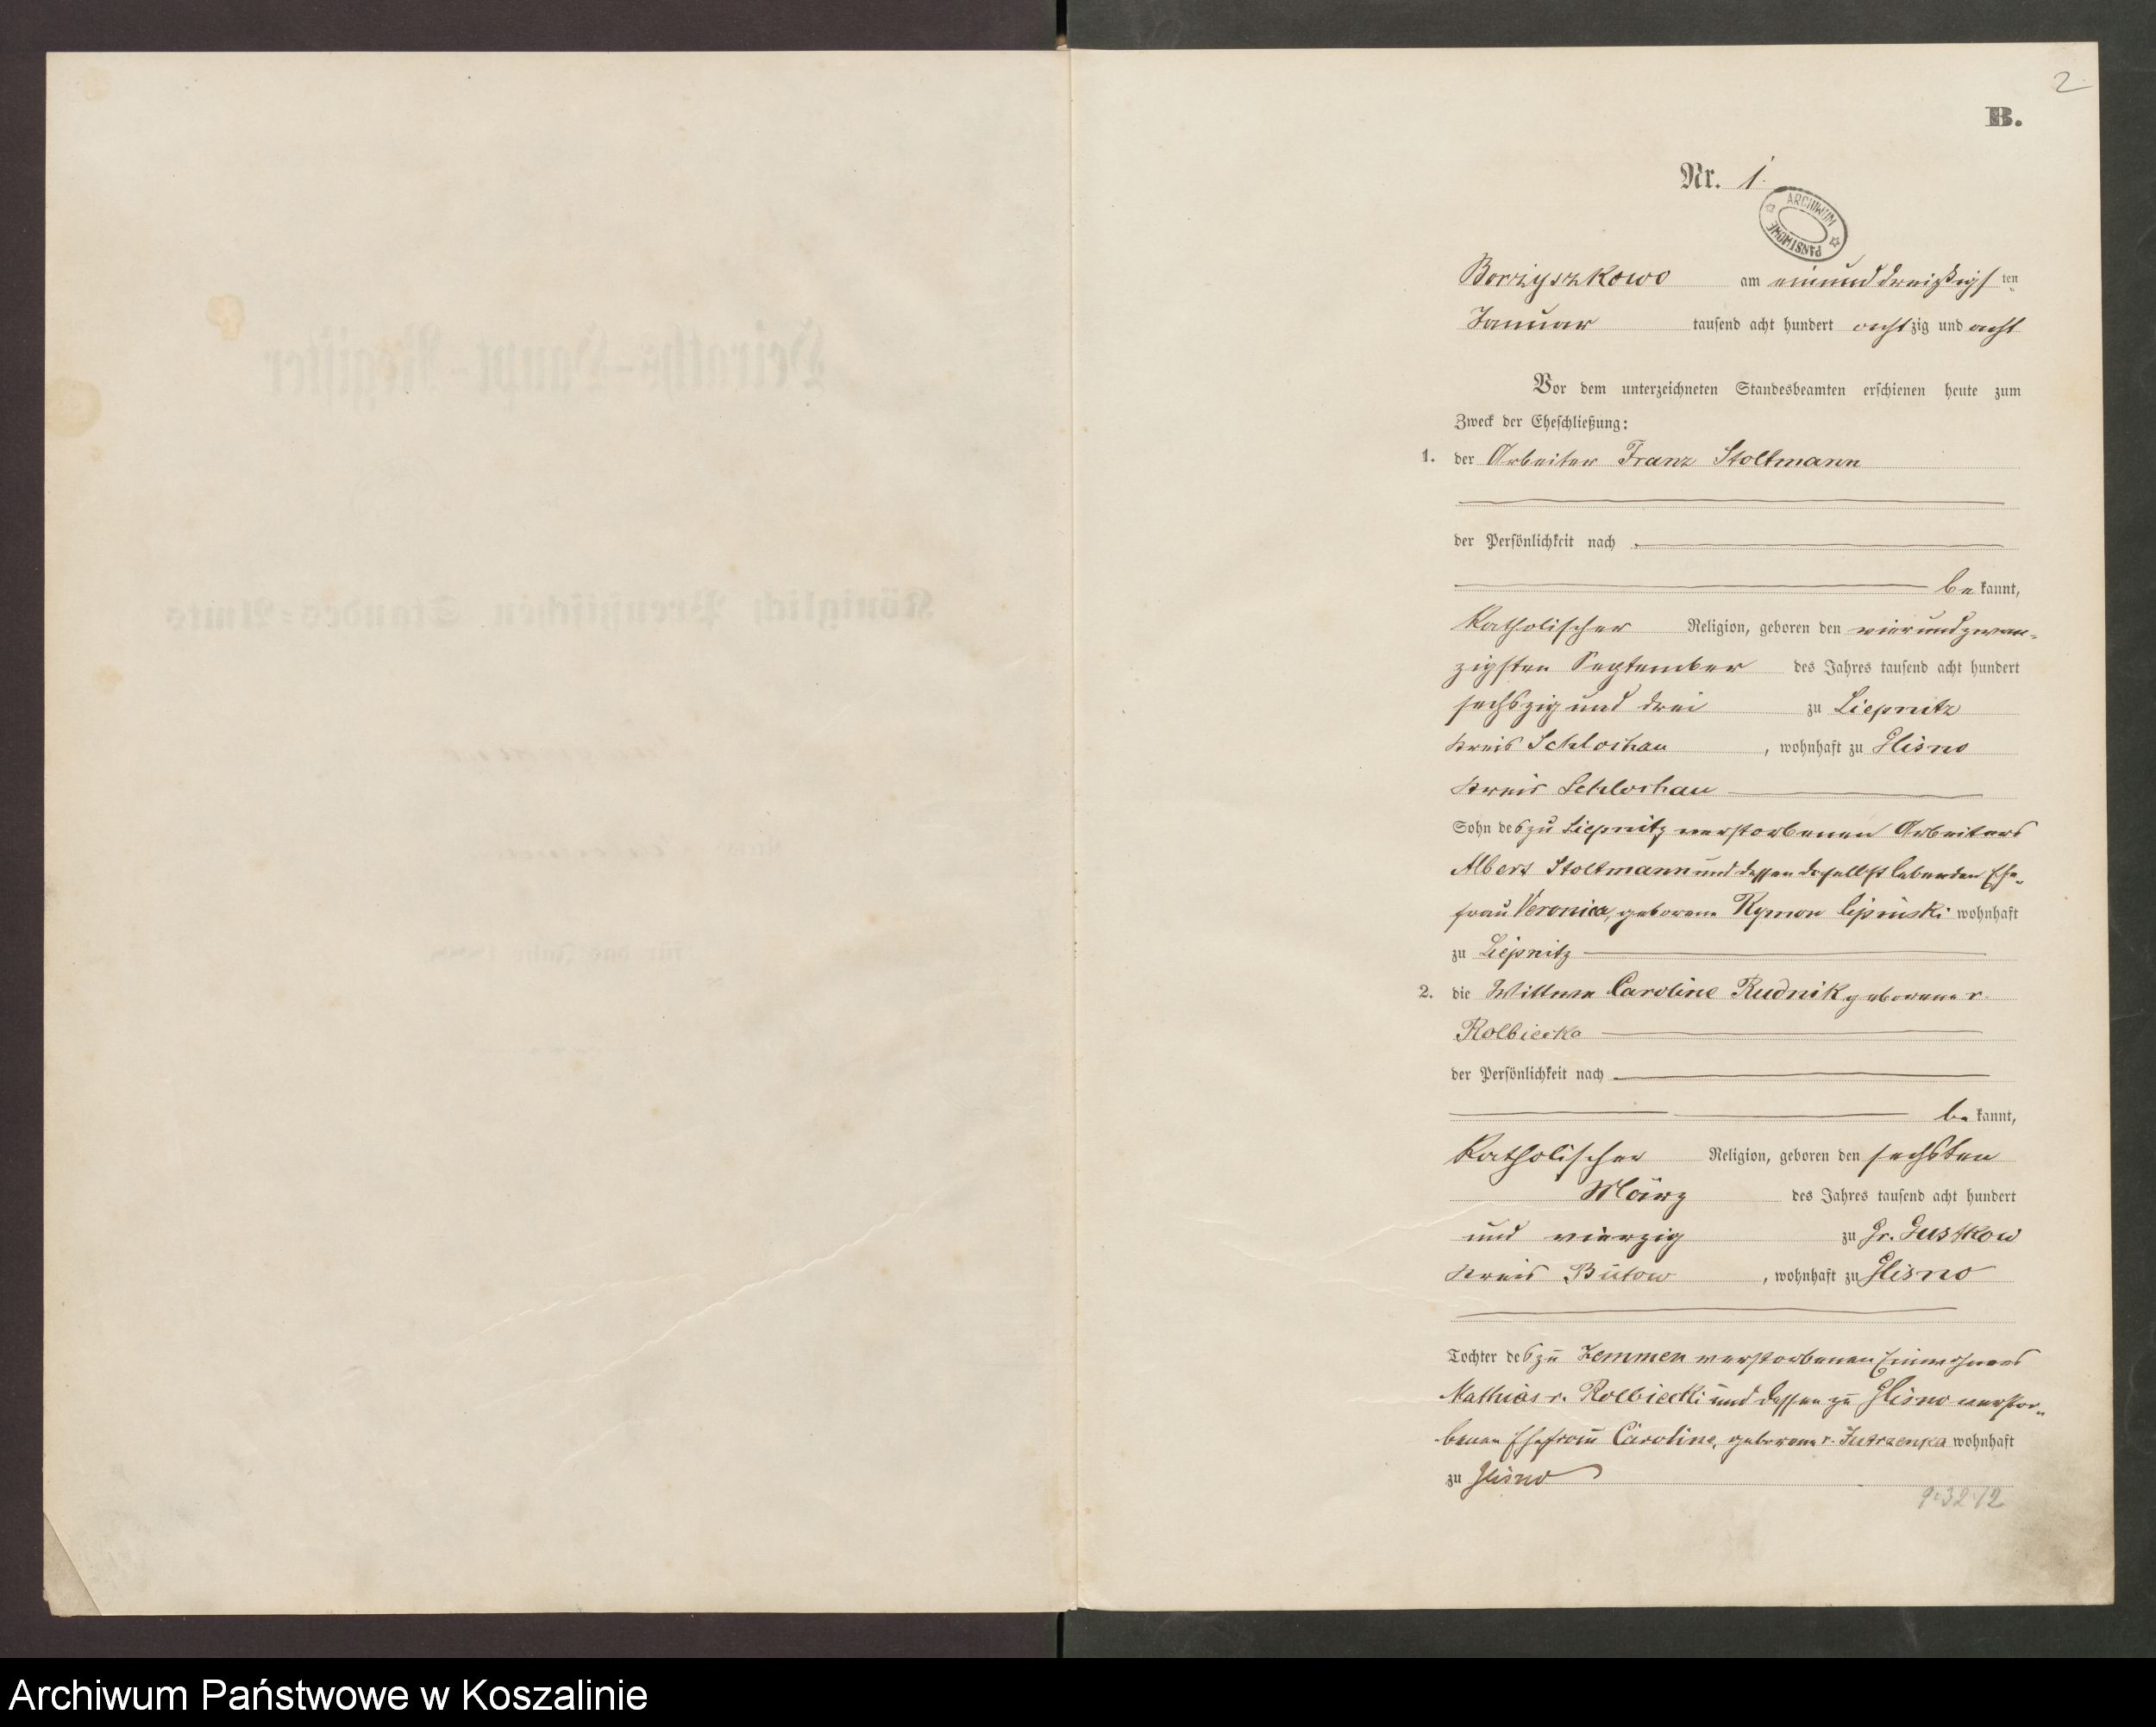 2
B.
Nr. 1.
ARCHIWUM PAŃSTWOWE
Borzyszkowo am einunddreißigsten
Januar tausend acht hundert achtzig und acht
Vor dem unterzeichneten Standesbeamten erschienen heute zum
Zweck der Eheschließung:
1. der Arbeiter Franz Stoltmann
der Persönlichkeit nach
bekannt,
Katholischer Religion, geboren den vierundzwan-
zigsten September des Jahres tausend acht hundert
sechszig und drei zu Liepnitz
Kreis Schlochau, wohnhaft zu Glisno
Kreis Schlochau
Sohn des zu Liepnitz verstorbenen Arbeiters
Albert Stoltmann und dessen daselbst lebenden Ehe-
frau Veronica, geborene Rymon Lipinski wohnhaft
zu Liepnitz
2. die Wittwe Caroline Rudnik geborene v.
Rolbiecka
der Persönlichkeit nach
bekannt,
Katholischer Religion, geboren den sechsten
März des Jahres tausend acht hundert
und vierzig zu Gr. Gustkow
Kreis Bütow, wohnhaft zu Glisno
Tochter des zu Zemmen verstorbenen Einwohners
Mathias v. Rolbiecki und dessen zu Glisno verstor-
benen Ehefrau Caroline, geborene v. Jutrzenka wohnhaft
zu Glisno
Heiraths-Haupt-Register
Königlich Preußischen Standes-Amts
für das Jahr 1888
Archiwum Państwowe w Koszalinie